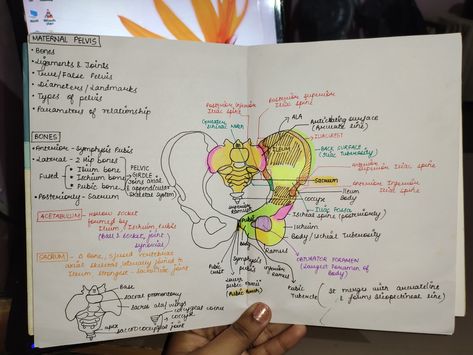 MATERNAL PELVIS
• Bones
• Ligaments & Joints
• True/False Pelvis
• Diameters/Landmarks
• Types of pelvis
• Parameters of relationship
BONES
• Anterior - Symphysis Pubis
• Lateral - 2 Hip bones
Fused
• Ilium bone
• Ischium bone
• Pubic bone
PELVIC GIRDLE
joins axial & appendicular skeletal system
• Posteriorly - Sacrum
ACETABULUM - Hollow socket
formed by
Ilium, Ischium, Pubis
(Ball & socket joint)
synovial
SACRUM - Δ Bone, 5 fused vertebrae
axial skeleton, laterally joined to
Ilium strongest - sacroiliac joint
Base
sacral promontory
sacral ala/wings
coccygeal cornu
coccyx
apex
sacrococcygeal joint
Posterior Inferior
Iliac Spine
Posterior Superior
Iliac Spine
ALA
Articulating surface
(Arcuate line)
ILIAC CREST
BACK SURFACE
(Iliac Tuberosity)
Anterior Superior Iliac Spine
Sacrum
Anterior Inferior
Iliac Spine
Ileum
Body
Coccyx
Iliac Fossa
Ischial spine (posteriorly)
Superior
Ramus
Ischium
Body/Ischial Tuberosity
Ramus
OBTURATOR FORAMEN
(Largest Foramen of
Body)
Pubic
Crest
Symphysis
pubis
Inferior
Ramus
Pubic
Tubercle
(Pubic Arch)
It merges with arcuate line
& forms iliopectineal line